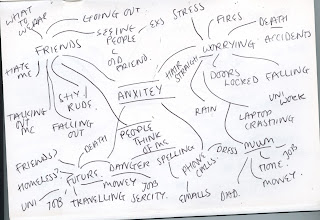 WHAT
TO
WEAR
GOING OUT.
SEEING
PEOPLE
EXS
OLD
FRIEND.
STRESS
FIRES
DEATH
ACCIDENTS
FRIENDS
WORRYING
HATE
ME
HAIR
STRAIGHT
DOORS
LOCKED
FALLING
ANXITEY
TALKING
OUT
ME
SHY
RUDE.
FALLING
OUT
RAIN
UNI
WORK
LAPTOP
CRASHING
PEOPLE
THINK
OF ME
DEATH
FRIENDS?
HOMELESS?
FUTURE
DANGER
SPELLING
PHONE
CALLS.
DRESS
MUM
JOB
TIME
MONEY.
UNI
JOB
MONEY
JOB
TRAVELLING
SERCITY.
SMALLS
DAD.